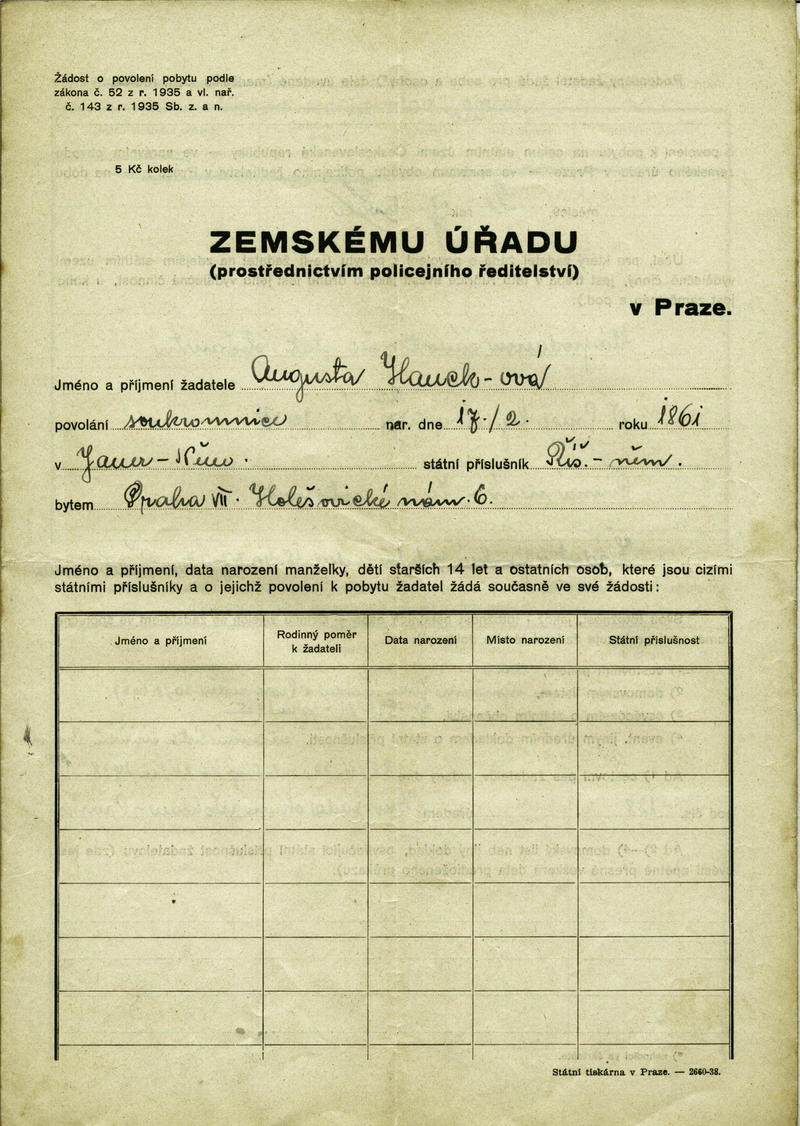 Žádost o povolení pobytu podle
zákona č. 52 z r. 1935 a vl. nař.
č. 143 z r. 1935 Sb. z. a n.
5 Kč kolek
ZEMSKÉMU ÚŘADU
(prostřednictvím policejního ředitelství)
v Praze.
Jméno a příjmení žadatele Augusta
povolání soukromnice nar. dne 17./2. roku 1861
v státní příslušník Říš. - něm.
bytem Praha VII. Holešovické nám. 6.
Jméno a příjmení, data narození manželky, dětí starších 14 let a ostatních osob, které jsou cizími
státními příslušníky a o jejichž povolení k pobytu žadatel žádá současně ve své žádosti:
Jméno a příjmení Rodinný poměr k žadateli Data narození Místo narození Státní příslušnost
Státní tiskárna v Praze. — 2660-38.